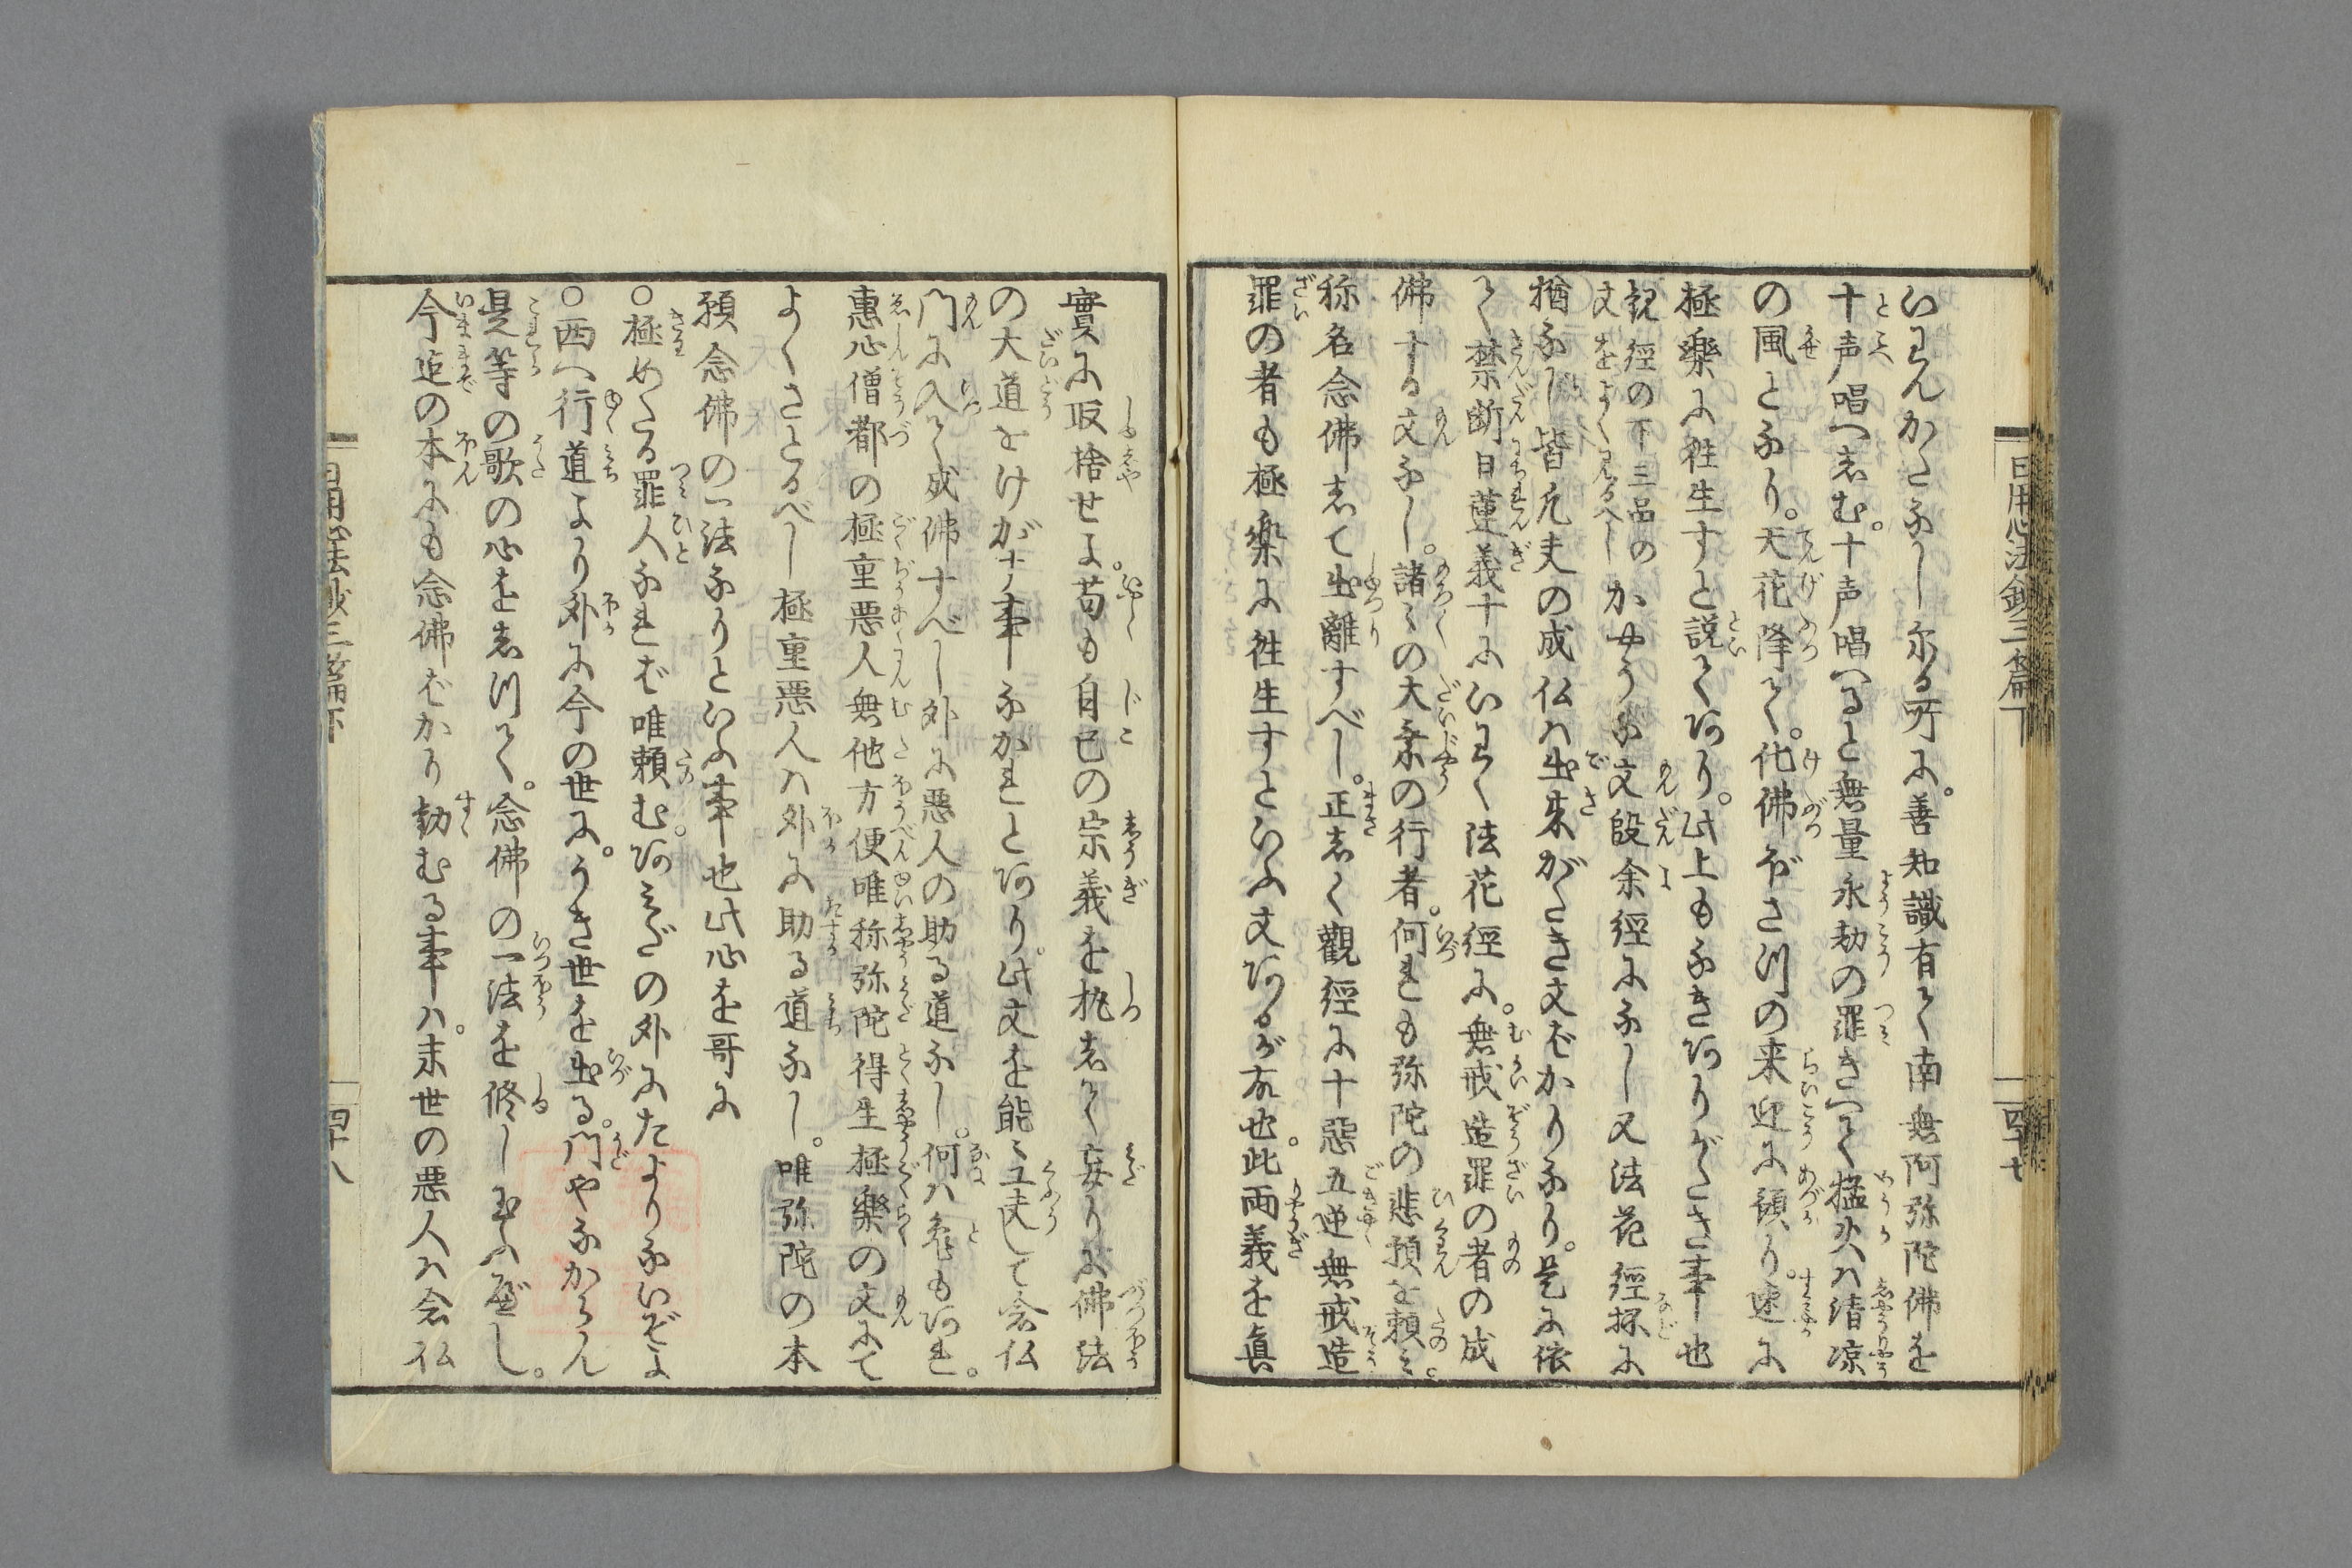 いわんかたなし尓る所に。善知識有て南無阿弥陀佛を
十声唱へしむ。十声唱へると無量永劫の罪きへて猛火ハ清凉
の風となり。天花降て。化佛ぼさつの来迎に預り。速に
極樂に往生すと説てあり。此上もなきありがたき事也
観經の下三品の
文をよくみるへし
かやうな文段余經になし又法花經抔に
猶なし皆凡夫の成仏ハ出来がたき文ばかりなり。是に依
て禁断日蓮義十にいわく法花經に。無戒造罪の者の成
佛する文なし。諸〻の大乗の行者。何れも弥陀の悲願を頼ミ。
称名念佛して出離すべし。正しく觀經に十惡五逆無戒造
罪の者も極楽に往生すといふ文あるが故也。此両義を眞
日用心法鈔三篇下
四十七
實に取捨せよ。苟も自己の宗義を執して妄りに佛法
の大道をけがす事なかれとあり。此文を能〻工夫して念仏
門に入て成佛すべし外に悪人の助る道なし。何ハ兎もあれ。
惠心僧都の極重悪人無他方便唯称弥陀得生極樂の文にて
よくさとるべし極重悪人ハ外に助る道なし。唯弥陀の本
願念佛の一法なりといふ事也此心を哥に
○極めたる罪人なれば唯頼む。あミだの外にたよりないぞよ
○西へ行道より外に今の世に。うき世を出る。門やなからん
是等の歌の心をしりて。念佛の一法を修し玉ふべし。
今迄の本にも念佛ばかり勧むる事ハ。末世の悪人ハ念仏
日用心法鈔三篇下
四十八